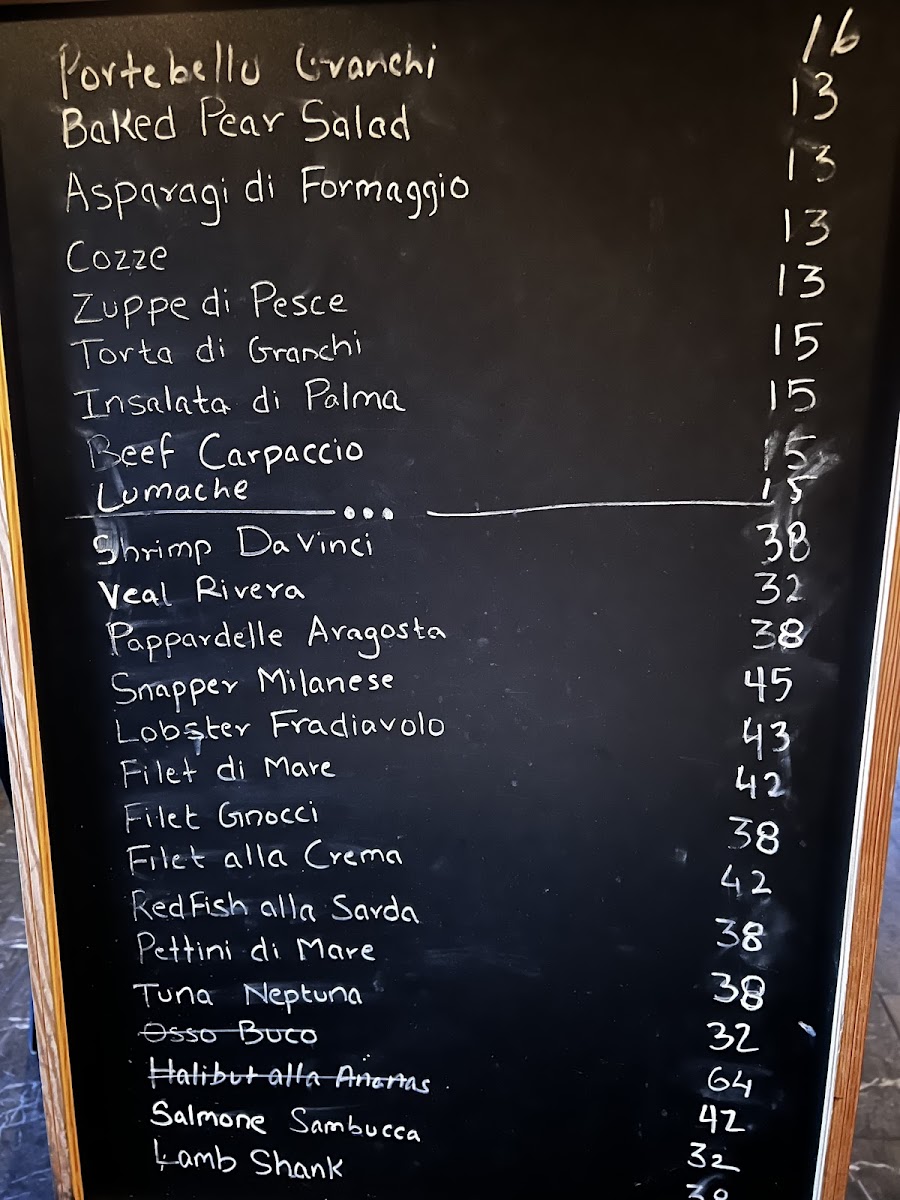 Portebello Granchi 16
Baked Pear Salad 13
Asparagi di Formaggio 13
Cozze 13
Zuppe di Pesce 13
Torta di Granchi 15
Insalata di Palma 15
Beef Carpaccio 15
Lumache 15
Shrimp Da Vinci 38
Veal Rivera 32
Pappardelle Aragosta 38
Snapper Milanese 45
Lobster Fradiavolo 43
Filet di Mare 42
Filet Gnocci 38
Filet alla Crema 42
RedFish alla Sarda 38
Pettini di Mare 38
Tuna Neptuna 32
Osso Buco 64
Halibut alla Ananas 42
Salmone Sambucca 32
Lamb Shank